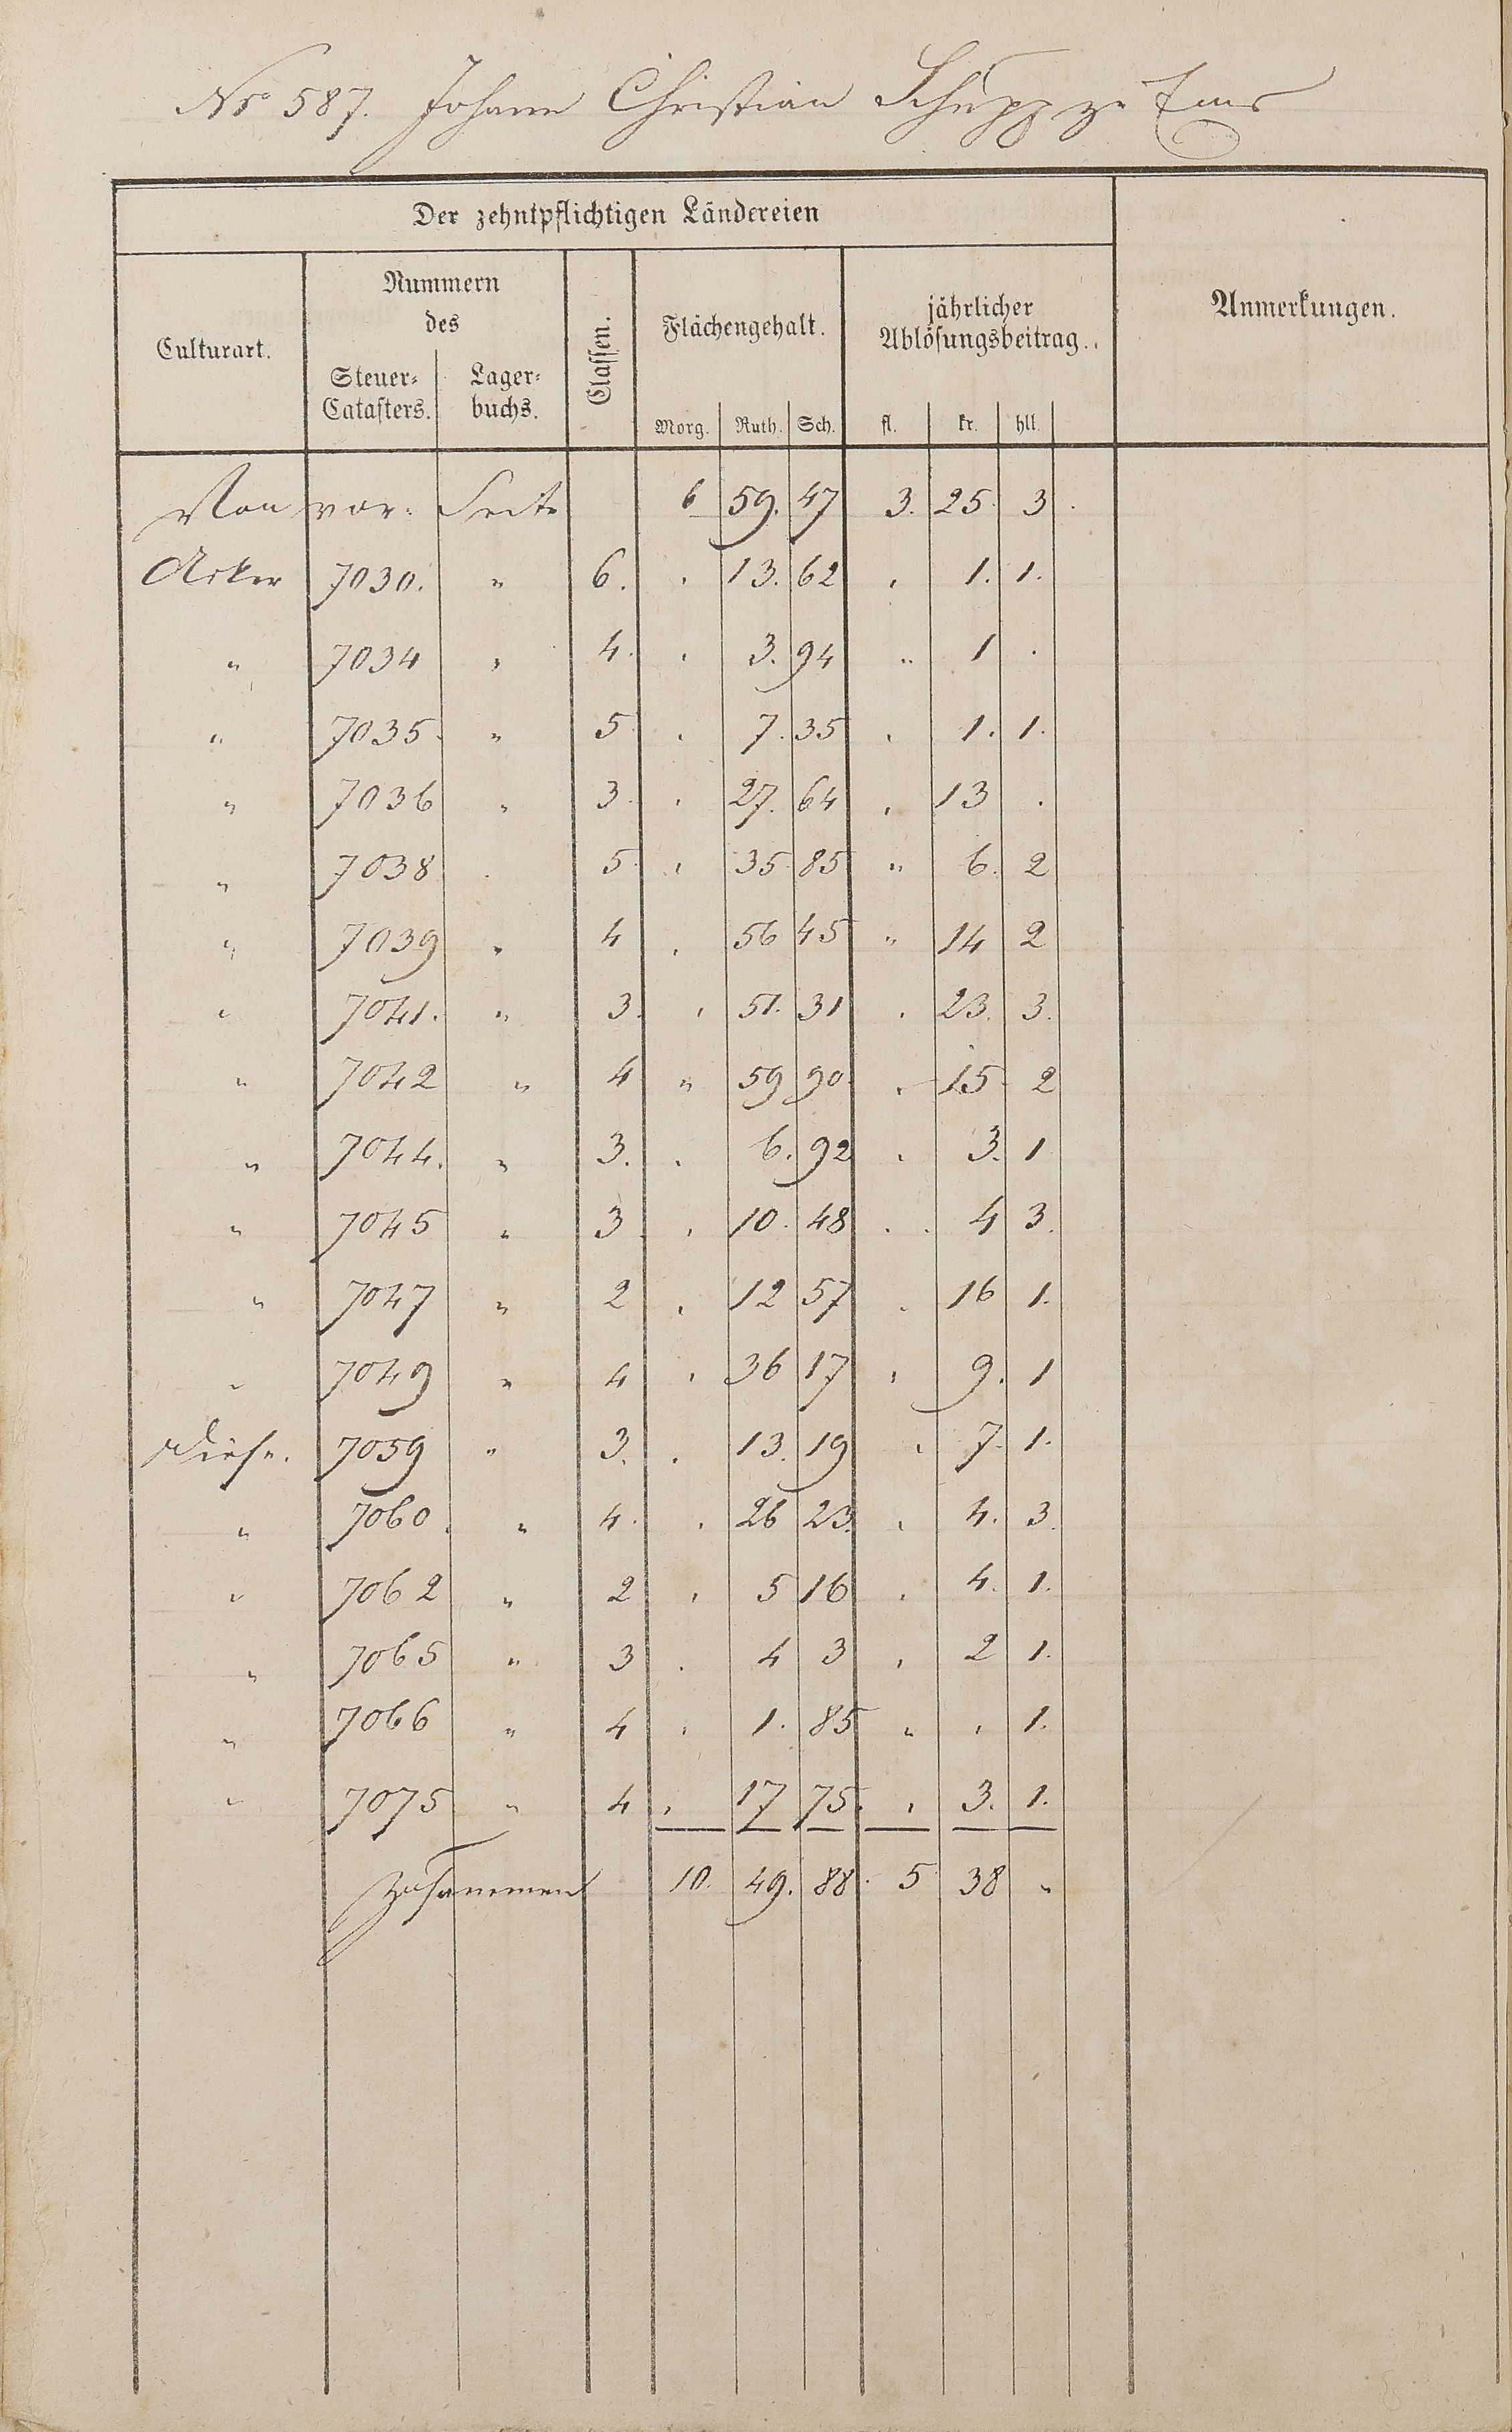 No 587. Johann Christian Schupp zu Ems
Der zehntpflichtigen Ländereien
Culturart. Nummern des Steuer-Catasters. Lager-buchs. Classen. Flächengehalt. jährlicher Ablösungsbeitrag. Anmerkungen.
Morg. Ruth. Sch. fl. kr. hll.
Von vor. Seite 6 59. 47 3. 25 3
Acker 7030. " 6. . 13. 62 . 1. 1.
" 7034 " 4. . 3. 94 " 1 .
" 7035 " 5 . 7. 35 . 1. 1.
" 7036 " 3 . 27. 64 . 13 .
" 7038 . 5 . 35 85 " 6. 2
" 7039 " 4 . 56 45 " 14 2
" 7041. " 3. . 51. 31 . 23. 3.
" 7042 " 4 " 59 90 . 15 2
" 7044. " 3. . 6. 92 . 3. 1
" 7045 " 3 . 10. 48 . 4 3.
" 7047 " 2 . 12 57 . 16 1.
" 7049 " 4 . 36 17 . 9. 1
Wiese. 7059 " 3. . 13. 19 . 7. 1.
" 7060. " 4. . 26 23. . 4. 3.
" 7062 " 2 . 5 16 . 4. 1.
" 7065 " 3 . 4 3 . 2 1.
" 7066 " 4 . 1. 85 " . 1.
" 7075 " 4 . 17 75. . 3. 1.
Zusammen 10. 49. 88 5 38 "